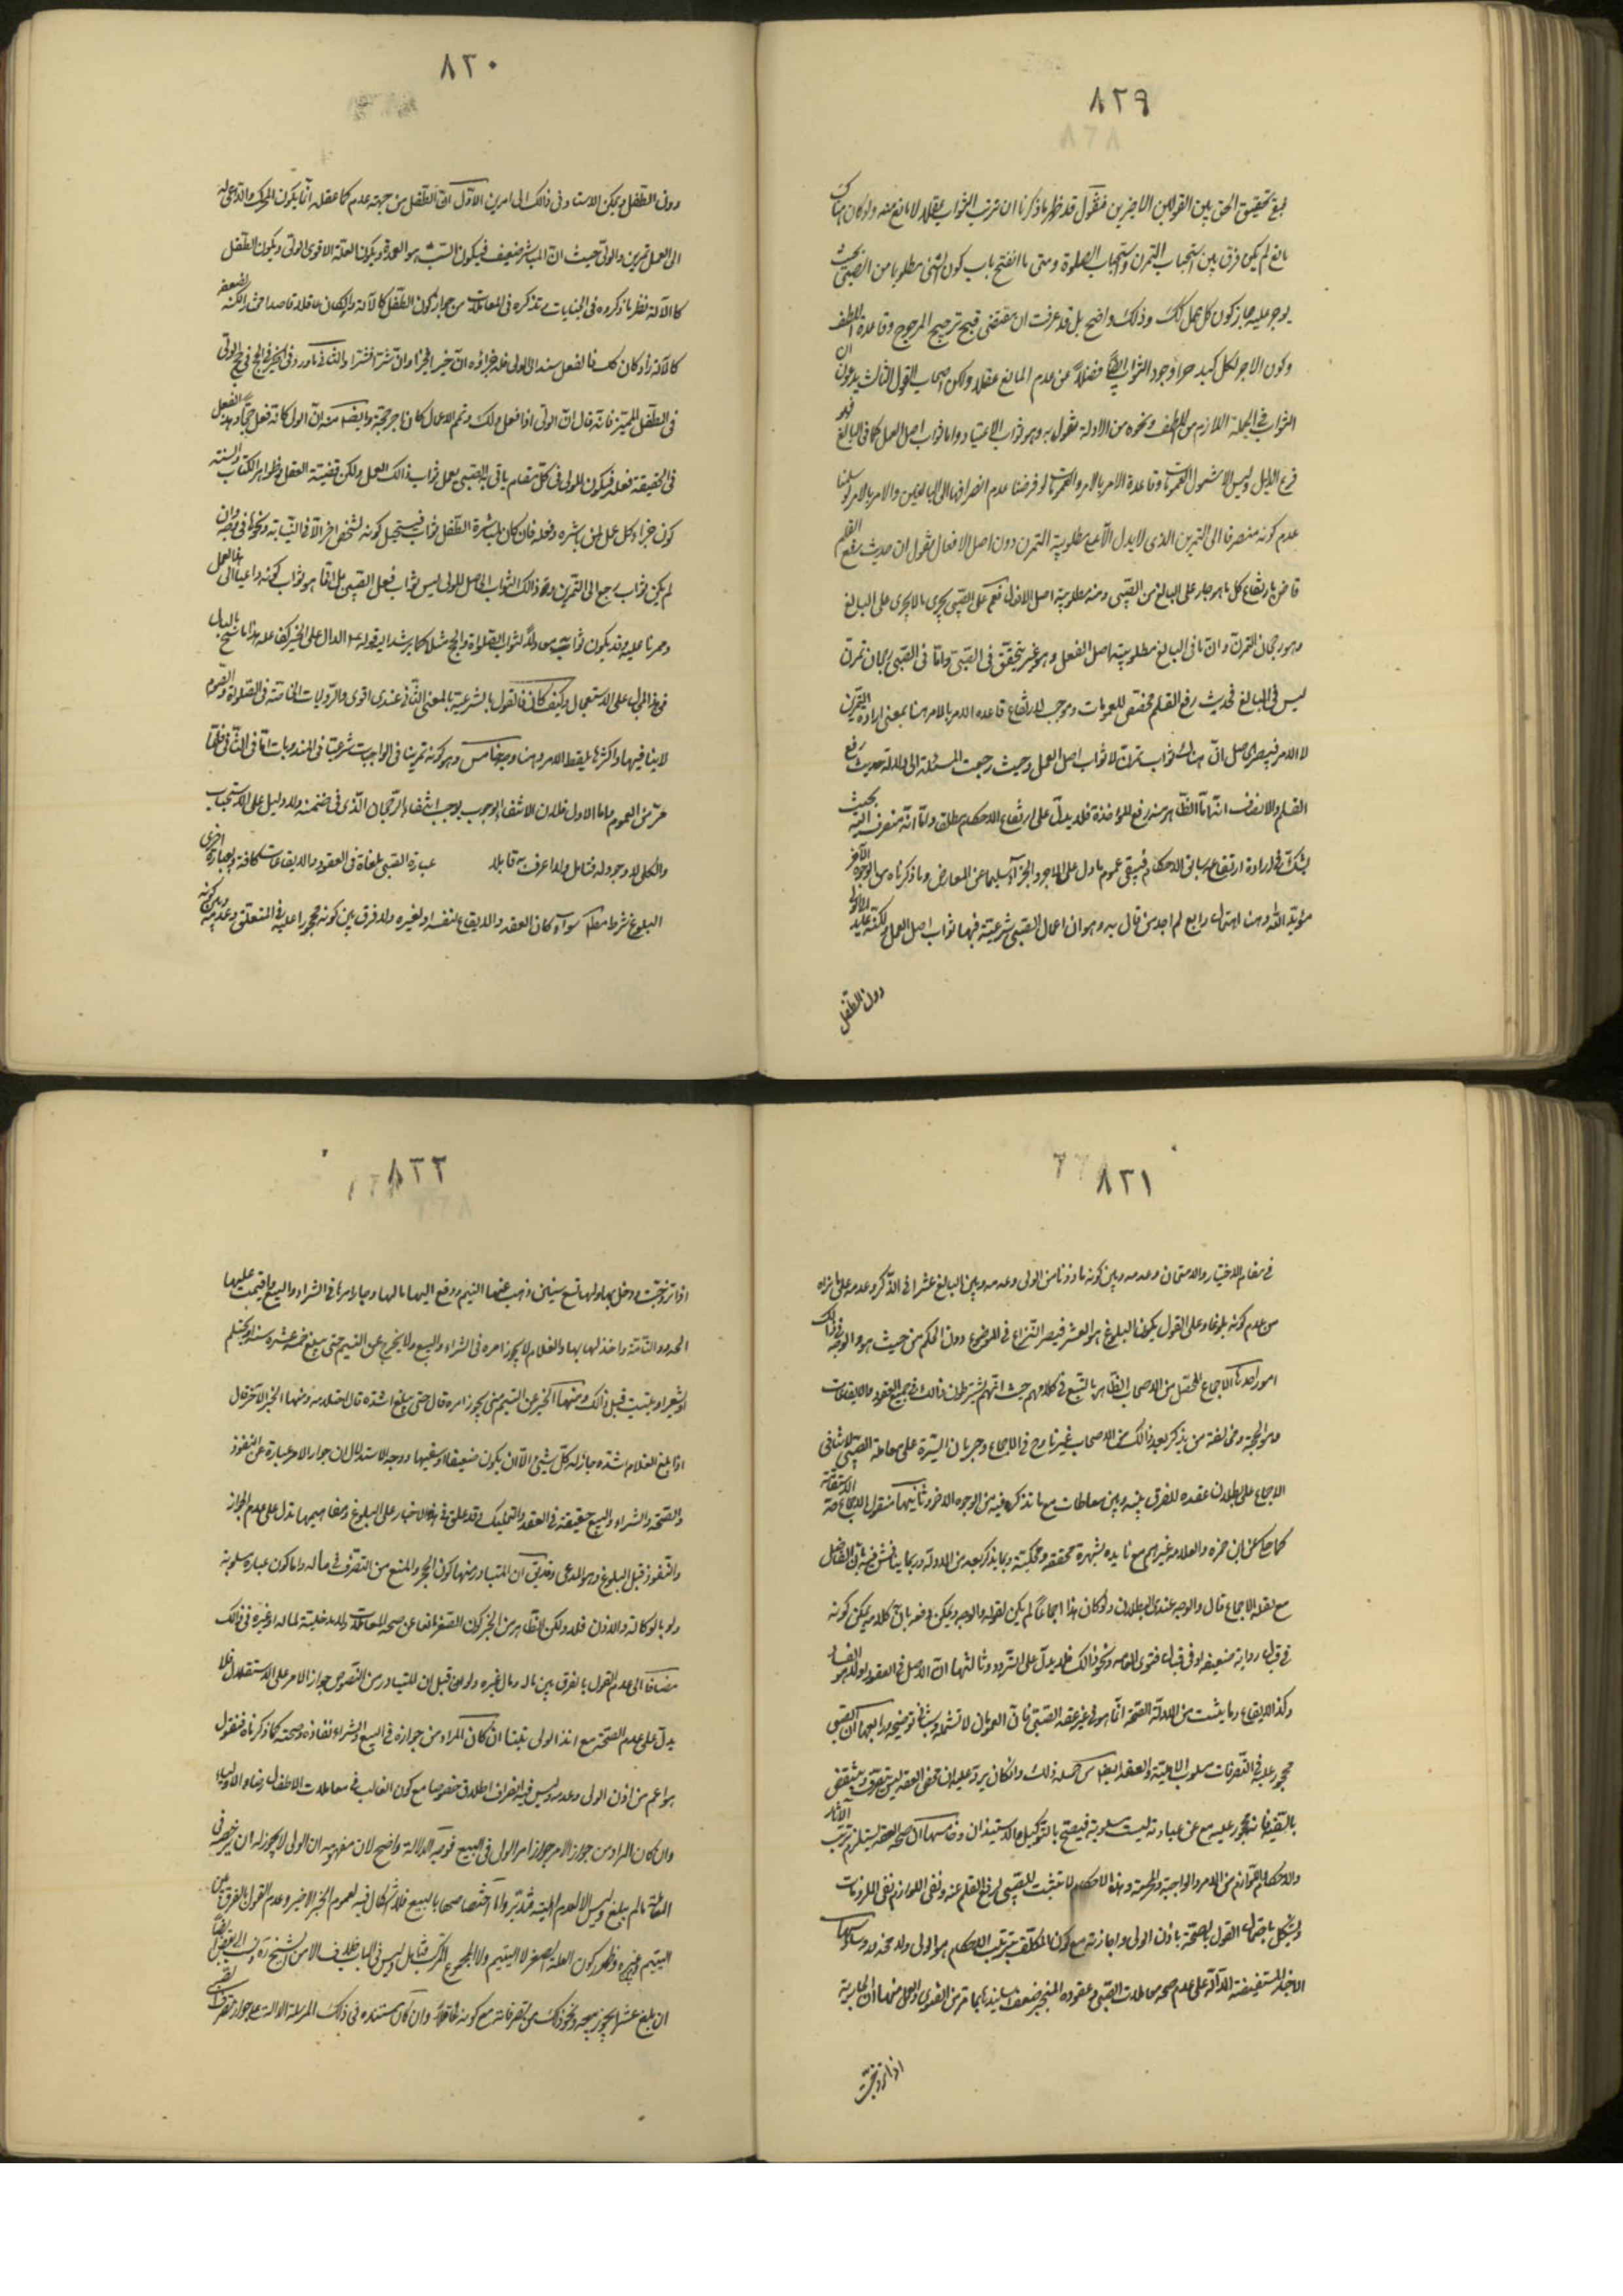 ٨٢٩
بقي تحقيق الحق بين القولين الاخيرين فنقول قد ظهر ما ذكرنا ان ترتب الثواب عقلا لا مانع منه ولو كان هناك
مانع لم يكن فرق بين استحباب التمرن واستحباب الصلوة ومتى ما انفتح باب كون الشئ مطلوبا من الصبي بحيث
يوجر عليه جاز كون كل عمل كذلك وذلك واضح بل قد عرفت ان مقتضى قبح ترجيح المرجوح وقاعدة اللطف
وكون الاجر لكل كبد حراء وجود الثواب ايضا فضلا عن عدم المانع عقلا ولكن اصحاب القول الثالث يدعون ان
الثواب في الجملة اللازم من اللطف ونحوه من الادلة نقول به وهو ثواب الاعتياد واما ثواب اصل العمل كما في البالغ فهو
فرع الدليل وليس الا شمول العمومات وقاعدة الامر بالامر والعمومات لو فرضنا عدم انصرافها الى البالغين والامر بالامر لو سلمنا
عدم كونه منصرفا الى التمرين الذي لا يدل الا على مطلوبية التمرن دون اصل الافعال نقول ان حديث رفع القلم
قاض بارتفاع كل ما هو جار على البالغ من الصبي ومنه مطلوبية اصل الافعال نعم على الصبي يجري ما لا يجري على البالغ
وهو رجحان التمرن وان ما في البالغ مطلوبية اصل الفعل وهو غير متحقق في الصبي واما في الصبي رجحان تمرن
ليس في البالغ فحديث رفع القلم مخصص للعمومات وموجب لارتفاع قاعدة الامر بالامر هنا بمعنى ارادة التمرين
لا الامر فيصير الحاصل ان هناك ثواب تمرن لا ثواب اصل العمل وحيث رجعت المسئلة الى دلالة حديث رفع
القلم والانصاف انه اما الظاهر منه رفع المؤاخذة فلا يدل على ارتفاع الاحكام مطلقا واما انه منصرف اليه بحيث
يشك في ارادة ارتفاع سائر الاحكام فيبقى عموم ما دل على الاجر والجزاء سليما عن المعارض وما ذكرناه من الوجوه الاخر
مؤيد لذلك وهنا احتمال رابع لم اجد من قال به وهو ان اعمال الصبي شرعية فيها ثواب اصل العمل ولكنه عايد للولي
دون الطفل
٨٣٠
دون الطفل ويمكن الاستناد في ذلك الى امرين الاول ان الطفل من جهة عدم كما عقله انما يكون المحرك والداعي له
الى العمل تمرين والولي حيث ان المباشر ضعيف فيكون السبب هو العمدة ويكون العلة الاقوى الولي ويكون الطفل
كالآلة نظير ما ذكروه في الجنايات وتذكره في المعاملات من جواز كون الطفل كالآلة وان كان عاقلا قاصدا حيث ان لضعفه
كالآلة واذا كان كذلك فالفعل مسند الى الولي فله جزاؤه ان خيرا فخيرا وان شرا فشرا والثاني ما ورد في الخبر في الحج في حج الولي
في الطفل المميز فانه قال ان الولي اذا فعل ذلك ونعم الاعمال كان له اجر حجة وايضا منه ان الولي كانه فعل حجا وهذا الفعل
في الحقيقة فعله فيكون للولي في كل مقام ياتي به الصبي بعمل ثواب ذلك العمل ولكن قضيته العقل وظواهر الكتاب والسنة
كون جزاء كل عمل لمن باشره وفعله فان كان لمباشرة الطفل ثواب فيستحيل كونه لشخص اخر الا في النيابة ونحوها في بعضه وان
لم يكن ثواب رجع الى التمرين وهو ذلك الثواب الحاصل للولي ليس ثواب فعل الصبي بل انما هو ثواب كونه داعيا الى هذا العمل
في هذا المجرى على الاستعجال وكيف كان فالقول بالشرعية بالمعنى الثاني عندي اقوى والروايات الخاصة في الصلوة والصوم
لا ينافيها واكثرها بلفظ الامر وهنا وجه خامس وهو كونه تمرينا في الواجبات شرعيا في المندوبات اما في الثاني فلما
مر من العموم واما الاول فلان الانتفاء الوجوب يوجب انتفاء الرجحان الذي في ضمنه ولا دليل على الاستحباب
والكل لا وجه له فتامل ولما عرفت سابقا عبارة الصبي ملغاة في العقود والايقاعات كافة وبعبارة اخرى
البلوغ شرط مطلقا سواء كان العقد والايقاع لنفسه او لغيره ولا فرق بين كونه محجورا عليه في المتعلق وعدمه وبين كونه
٨٣١
في مقام الاختبار والامتحان وعدمه وبين كونه ماذونا من الولي وعدمه وبين البالغ عشرا في الذكر وعدمه على ما نراه
من عدم كونه بلوغا وعلى القول بكون البلوغ هو العشر فيصير النزاع في الموضوع دون الحكم من حيث هو والوجه في ذلك
امور احدها الاجماع المحصل من الاصحاب الظاهر بالتتبع في كلامهم حيث انهم يشترطون ذلك في جميع العقود والايقاعات
وهو الحجة ومخالفة من يذكر بعد ذلك من الاصحاب غير قادح في الاجماع وجريان السيرة على معاملة الصبي لا ينافي
الاجماع على بطلان عقده للفرق بينه وبين معاطات مع ما نذكره فيه من الوجوه الاخر وثانيها منقول الاجماع حد الاستفاضة
كما حكي عن ابن حمزه والعلامه وغيرهم مع تاييده بشهرة محققه ومحكية وبما يذكر بعد من الادلة وربما يناقش فيه بان الفاضل
مع نقله الاجماع قال والوجه عندي البطلان ولو كان هذا اجماعا لم يكن لقوله والوجه ويمكن دفعه بان كلامه يمكن كونه
في قبال رواية ضعيفه او في قبال فتوى العامه ونحو ذلك فلا يدل على التردد وثالثها ان الاصل في العقود اولا هو الفساد
وكذا الايقاع وما يثبت من الادلة الصحة انما هو في غير عقد الصبي فان العمومات لا تشمله وسياتي توضيحه ورابعها ان الصبي
محجور عليه في التصرفات مسلوب الاهلية والعقد ايضا من جملة ذلك وان كان يرد عليه ان محض العقد ليس بتصرف وينتقض
بالسفيه فانه محجور عليه مع ان عبارته ليست مسلوبة فيصح بالتوكيل والاستيذان وخامسها ان صحة العقد يستلزم ترتب الآثار
والاحكام واللوازم من الامر والواجبة والحرمة وهذه الاحكام لا تثبت للصبي لرفع القلم عنه ونفي اللوازم نفي الملزومات
ويشكل باحتمال القول بالصحة باذن الولي واجازته مع كون المكلف بترتيب الاحكام هو الولي ولا محذور وسادسها
الاخبار المستفيضة الدالة على عدم صحة معاملات الصبي وعقوده المنجبر ضعف اسانيدها بما مر من الفتوى والعمل منها ان الجارية
اذا تزوجت
٨٣٢
اذا تزوجت ودخل بها ولها تسع سنين ذهب عنها اليتم ودفع اليها مالها وجاز امرها في الشراء والبيع واقيمت عليها
الحدود التامة واخذ لها بها والغلام لا يجوز امره في الشراء والبيع ولا يخرج عن اليتم حتى يبلغ خمسة عشر سنة او يحتلم
او يشعر او ينبت قبل ذلك ومنها الخبر عن اليتيم متى يجوز امره قال حتى يبلغ اشده قال احتلامه ومنها الخبر الاخر قال
اذا بلغ الغلام اشده جاز له كل شيئ الا ان يكون ضعيفا او سفيها ووجه الاستدلال ان جواز الامر عبارة عن النفوذ
والصحة والشراء والبيع حقيقة في العقد والتمليك وقد علق في هذه الاخبار على البلوغ ومفاهيمها تدل على عدم الجواز
والنفوذ قبل البلوغ وهو المدعى وقد يق ان المتبادر منها كون الحجر والمنع من التصرف في ماله واما كون عبارة مسلوبة
ولو بالوكالة والاذن فلا ولكن الظاهر من الخبر كون الصغر مانعا عن صحة المعاملات ولا مدخلية لماله او غيره في ذلك
مضافا الى عدم القول بالفرق بين ماله ومال غيره ولو ان قيل ان المتبادر من النصوص جواز الامر على الاستقلال فلا
يدل على عدم الصحة مع اذن الولي قلنا ان كان المراد من جوازه في البيع والشراء نفاذه وصحته كما ذكرناه فنقول
هو اعم من اذن الولي وعدمه وليس فيه انصراف اطلاق خصوصا مع كون الغالب في معاملات الاطفال رضاء الاولياء
وان كان المراد من جواز الامر جواز امر الولي في البيع فوجه الدلالة واضح لان مفهومه ان الولي لا يجوز له ان يرخصه في
المعاملة ما لم يبلغ وليس الا لعدم اهليته فتدبر واما اختصاصها بالبيع فلا اشكال فيه لعموم الخبر الاخير وعدم القول بالفرق بين
اليتيم وغيره وظهور كون العلة الصغر لا اليتيم ولا المجموع المركب فتامل وليس في الباب خلاف الا من الشيخ ره ونسب الى بعض ايضا
ان بلغ عشرا يجوز بيعه ونحو ذلك من تصرفاته مع كونه عاقلا وان كان مستنده في ذلك المرسلة الدالة على جواز تصرفات الصبي